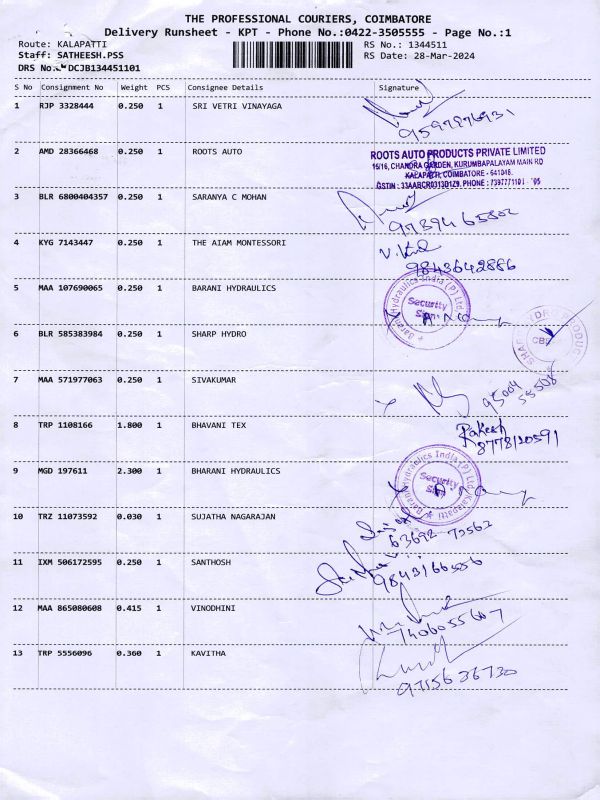 THE PROFESSIONAL COURIERS, COIMBATORE
Delivery Runsheet - KPT - Phone No.:0422-3505555 - Page No.:1
Route: KALAPATTI RS No.: 1344511
Staff: SATHEESH.PSS RS Date: 28-Mar-2024
DRS No. DCJB134451101
S No Consignment No Weight PCS Consignee Details Signature
1 RJP 3328444 0.250 1 SRI VETRI VINAYAGA
2 AMD 28366468 0.250 1 ROOTS AUTO
ROOTS AUTO PRODUCTS PRIVATE LIMITED
15/16, CHANDRA GARDEN, KURUMBAPALAYAM MAIN RD
KALAPATTI, COIMBATORE - 641048.
3 BLR 6800404357 0.250 1 SARANYA C MOHAN
4 KYG 7143447 0.250 1 THE AIAM MONTESSORI
9843642886
5 MAA 107690065 0.250 1 BARANI HYDRAULICS
Barani Hydraulics India (P) Ltd
Security
Sign
6 BLR 585383984 0.250 1 SHARP HYDRO
7 MAA 571977063 0.250 1 SIVAKUMAR
95004
8 TRP 1108166 1.800 1 BHAVANI TEX
Rakesh
9 MGD 197611 2.300 1 BHARANI HYDRAULICS
Barani Hydraulics India (P) Ltd Kalapatti
Security
Sign
10 TRZ 11073592 0.030 1 SUJATHA NAGARAJAN
11 IXM 506172595 0.250 1 SANTHOSH
12 MAA 865080608 0.415 1 VINODHINI
7406055607
13 TRP 5556096 0.360 1 KAVITHA
9715636730